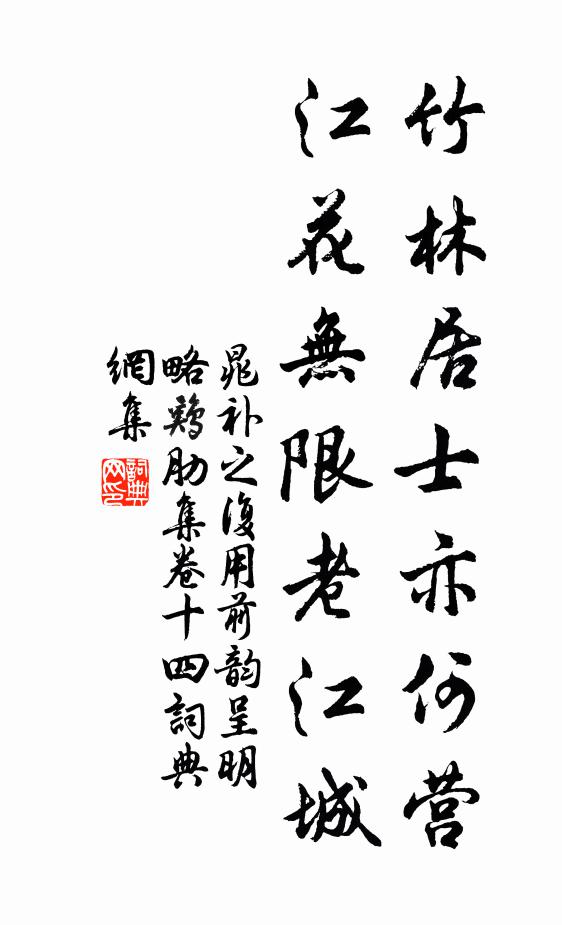 竹林居士亦何营
江花無限老江城
晁补之復用前韵呈明
略鶏肋集卷十四詞典
網集
詞典網印